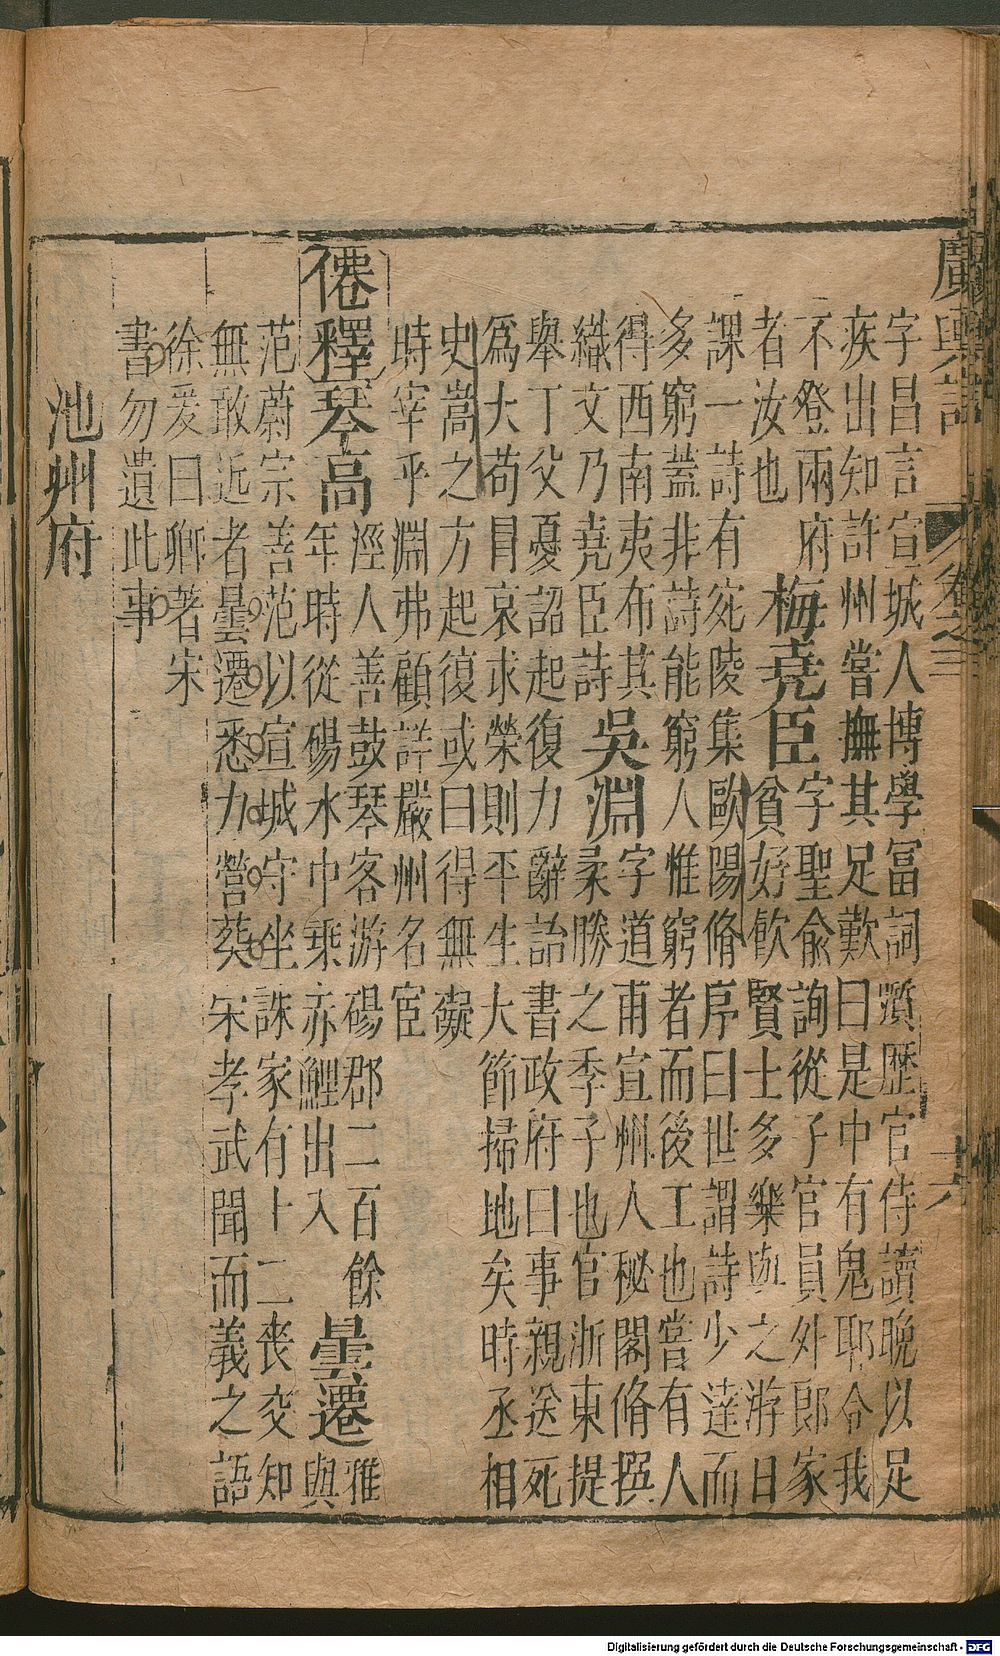 廣輿記 卷之三 十六
字昌言宣城人博學冨詞翰歷官侍讀晩以足
疾出知許州嘗撫其足歎曰是中有鬼耶令我
不登兩府 梅堯臣 字聖俞詢從子官員外郎家
者汝也 貧好飮賢士多樂與之游日
課一詩有宛陵集歐陽脩序曰世謂詩少達而
多窮蓋非詩能窮人惟窮者而後工也嘗有人
得西南夷布其 吳淵 字道甫宣州人秘閣脩撰
織文乃堯臣詩 柔勝之季子也官浙東提
舉丁父憂詔起復力辭詒書政府曰事親送死
爲大苟冒哀求榮則平生大節掃地矣時丞相
史嵩之方起復或曰得無礙
時宰乎淵弗顧詳嚴州名宦
僊釋 琴高 涇人善鼓琴客游碭郡二百餘 曇遷 雅
年時從碭水中乘赤鯉出入 與
范蔚宗善范以宣城守坐誅家有十二喪交知
無敢近者曇遷悉力營葬宋孝武聞而義之語
徐爰曰卿著宋
書勿遺此事
池州府
Digitalisierung gefördert durch die Deutsche Forschungsgemeinschaft - DFG